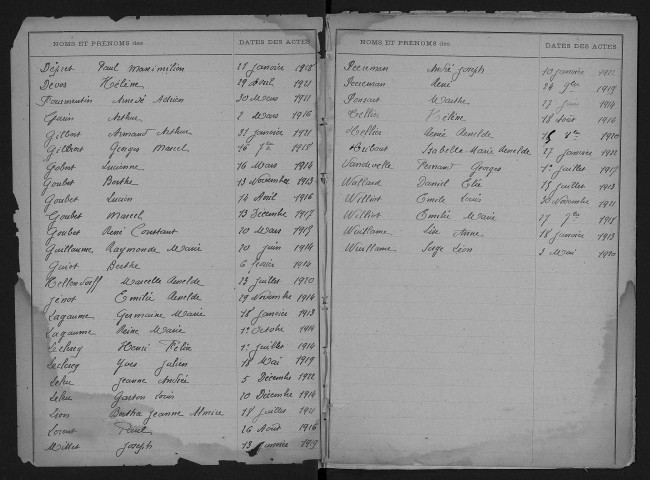 NOMS ET PRÉNOMS des DATES DES ACTES
Dépret Paul Maximilien 1918
Devos Hélène 29 Avril 1921
Fourmentin André Adrien 30 Mars 1911
Guin Arthur 2 Mars 1916
Gilbert Armand Arthur 31 janvier 1921
Gilbert Georges Marcel 16 7bre 1918
Gobert Lucienne 16 Mars 1914
Goubet Berthe 13 Novembre 1913
Goubet Lucien 14 Avril 1916
Goubet Marcel 13 Décembre 1917
Goubet René Constant 20 Mars 1919
Guillaume Raymonde Marie 20 juin 1914
Guiot Berthe 6 février 1914
Marcelle Arnelde 23 juillet 1920
Jénot Emilie Arnelde 29 Novembre 1914
Lagaume Germaine Marie 18 janvier 1913
Lagaume Reine Marie 1er Octobre 1914
Leclercq Henri Félix 1er juillet 1914
Leclercq Yves Julien 18 Mai 1919
Leleu Jeanne Andrée 5 Décembre 1922
Leleu Gaston Louis 20 Décembre 1914
Lion Berthe Jeanne Almire 18 juillet 1911
Lorent 26 Août 1916
Millet Joseph 13 janvier 1919
NOMS ET PRÉNOMS des DATES DES ACTES
André Joseph 10 janvier 1922
René 24 9bre 1919
Ponsart Marthe 27 juin 1914
Tellier Hélène 18 Août 1914
Tellier Arnelde 1920
Isabelle Marie Arnelde 27 janvier 1922
Vandevelle Fernand Georges 1er juillet 1917
Wallard Daniel Elie 15 juillet 1913
Williot Emile Louis 30 Novembre 1921
Williot Emilie Marie 27 7bre 1918
Wuillame Anne 18 janvier 1913
Wuillame Serge Léon 3 Mai 1920